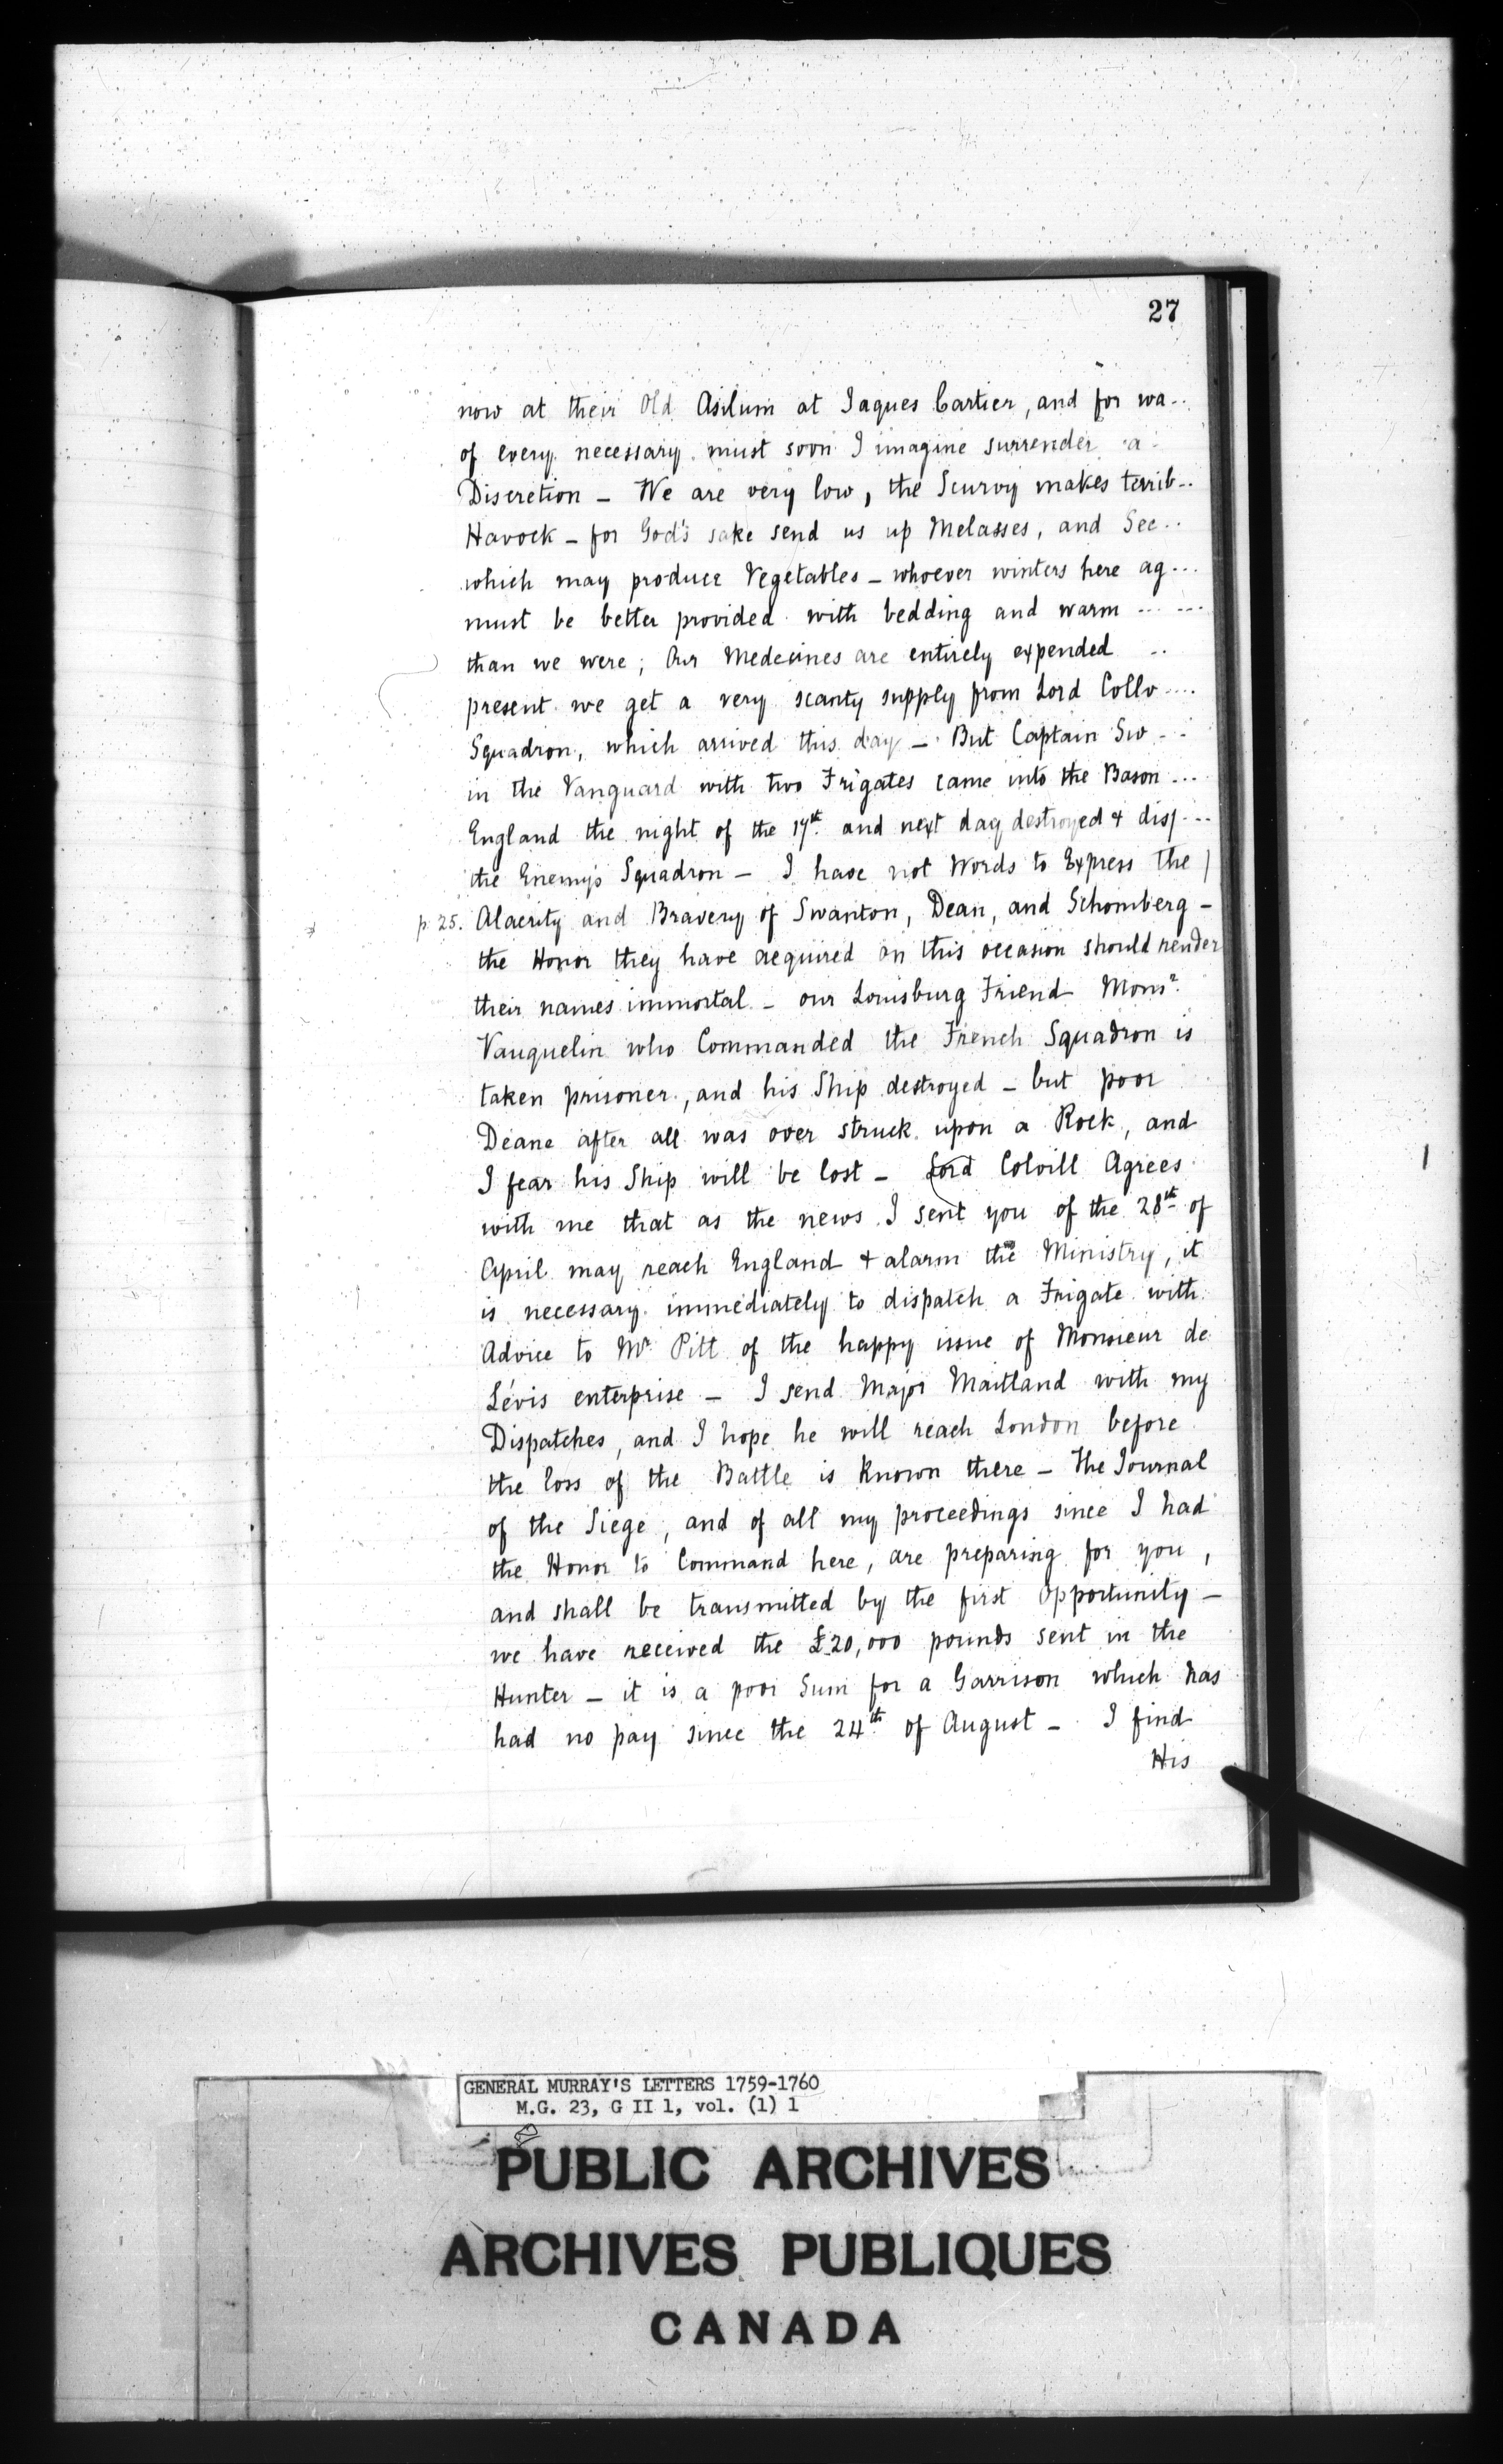 27
now at their Old Asilum at Jaques Cartier, and for wa..
of every necessary must soon I imagine surrender a-
Discretion - We are very low, the Scurvy makes terrib..
Havock - for God's sake send us up Melasses, and See..
which may produce Vegetables - whoever winters here ag...
must be better provided with bedding and warm ... ...
than we were; Our Medecines are entirely expended ..
present we get a very scanty supply from Lord Collv....
Squadron, which arrived this day - But Captain Sw - -
in the Vanguard with two Frigates came into the Bason ...
England the night of the 17th and next day destroyed & disp...
the Enemy's Squadron - I have not Words to Express the
p. 25. Alacrity and Bravery of Swanton, Dean, and Schomberg -
the Honor they have acquired on this occasion should render
their names immortal - our Louisburg Friend Monsr.
Vauquelin who Commanded the French Squadron is
taken prisoner, and his Ship destroyed - but poor
Deane after all was over struck upon a Rock, and
I fear his Ship will be lost - Lord Colvill Agrees
with me that as the news I sent you of the 28th of
April may reach England & alarm the Ministry, it
is necessary immediately to dispatch a Frigate with
Advice to Mr Pitt of the happy issue of Monsieur de
Lévis enterprise - I send Major Maitland with my
Dispatches, and I hope he will reach London before
the loss of the Battle is known there - The Journal
of the Siege, and of all my proceedings since I had
the Honor to Command here, are preparing for you,
and shall be transmitted by the first Opportunity -
we have received the £20,000 pounds sent in the
Hunter - it is a poor Sum for a Garrison which has
had no pay since the 24th of August - I find
His
GENERAL MURRAY'S LETTERS 1759-1760
M.G. 23, G II 1, vol. (1) 1
PUBLIC ARCHIVES
ARCHIVES PUBLIQUES
CANADA